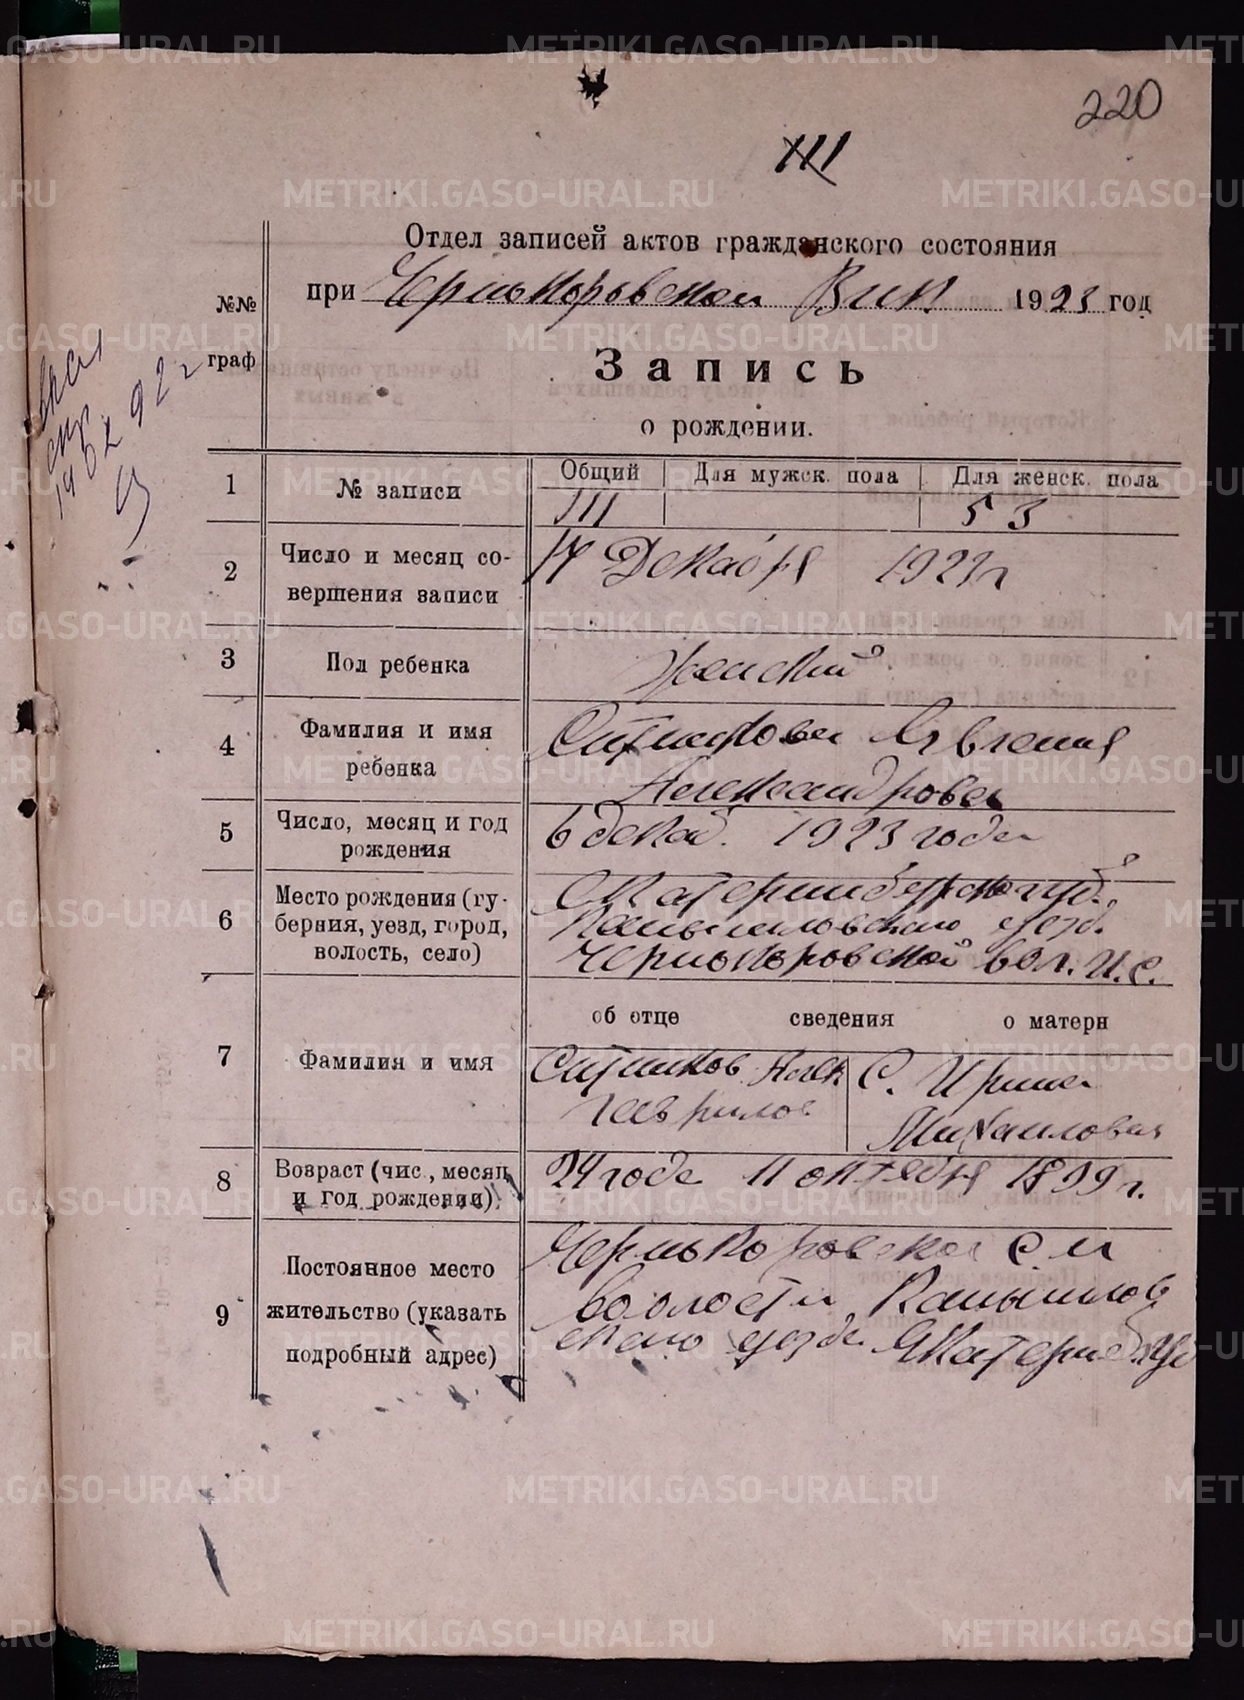 220
111
Отдел записей актов гражданского состояния
при Чернокоровском Вик. 1923 год
№№
граф
Запись
о рождении.
1 № записи Общий Для мужск. пола Для женск. пола
111 53
2 Число и месяц со-
вершения записи
14 Декабря 1923 г
3 Пол ребенка Женский
4 Фамилия и имя
ребенка
Ситникова Евгения
Александровна
5 Число, месяц и год
рождения
6 декаб. 1923 года
6 Место рождения (гу-
берния, уезд, город,
волость, село)
Екатеринбургской губ.
Камышловского уезд.
Чернокоровской вол. и с.
об отце сведения о матери
7 Фамилия и имя
Ситников Алек
Гаврилов
С. Ирина
Михаиловна
8 Возраст (чис., месяц
и год рождении)
24 года 11 октября 1899 г.
9 Постоянное место
жительство (указать
подробный адрес)
Чернокоровское с и
волости Камышлов
ского уезда Екатеринб. губ
METRIKI.GASO-URAL.RU